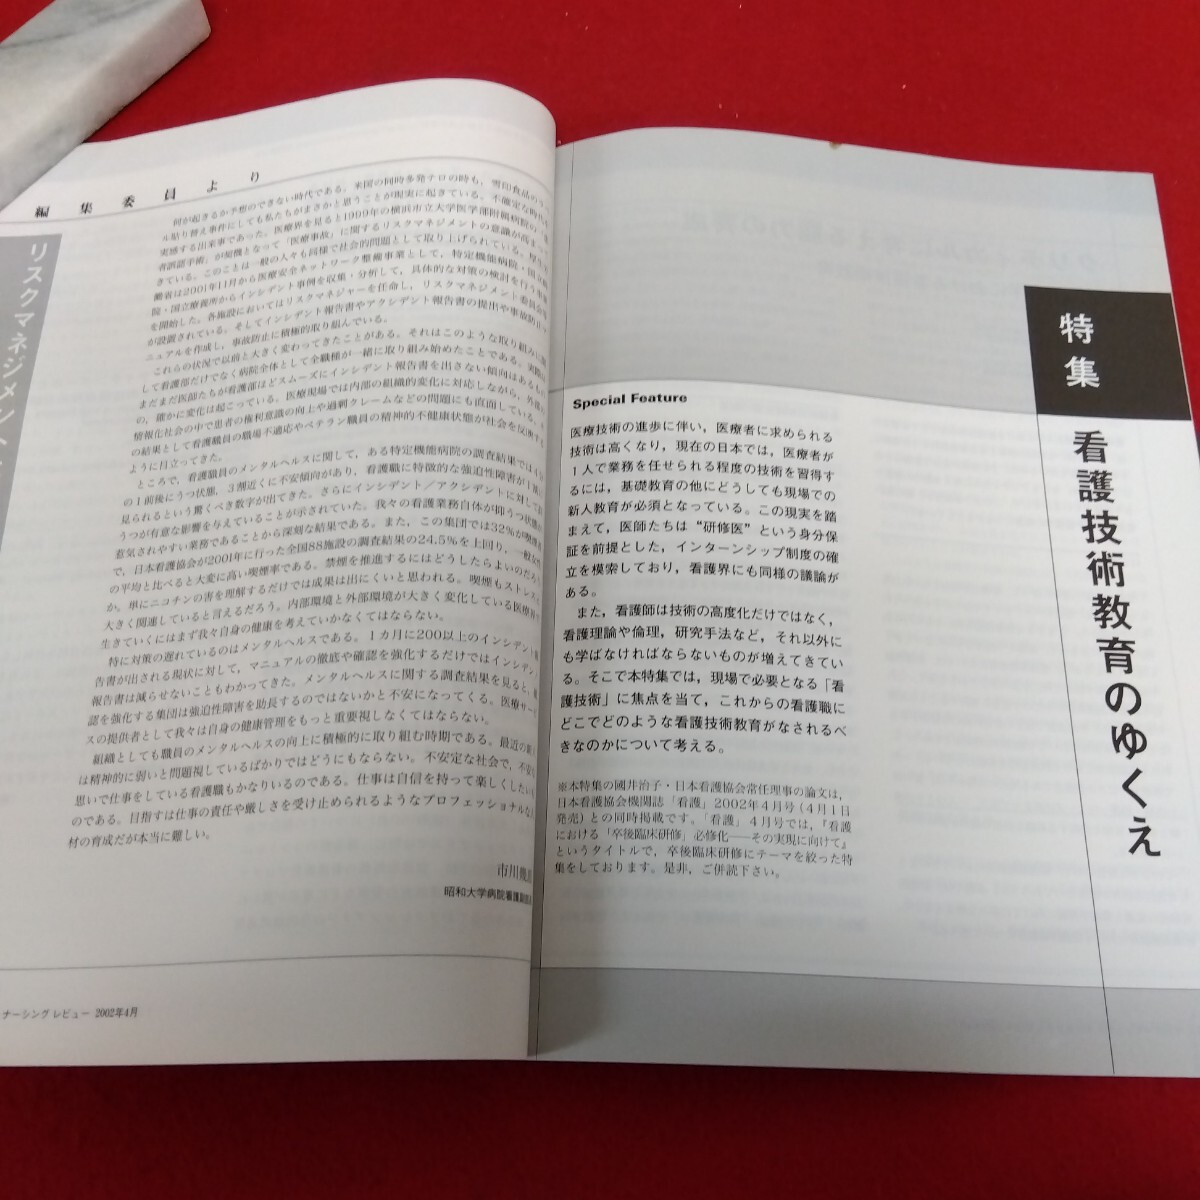 編集委員より
リスクマネジメント
何が起きるか予想のできない時代である。米国の同時多発テロの時も，雪印食品の
ル貼り替え事件にしても私たちがまさかと思うことが現実に起きている。不確定な時代を
実感する出来事であった。医療界を見ると1999年の横浜市立大学医学部附属病院の「患
者誤認手術」が契機となって「医療事故」に関するリスクマネジメントの意識が高まって
きている。このことは一般の人々も同様で社会的問題として取り上げられている。厚生労
働省は2001年11月から医療安全ネットワーク整備事業として，特定機能病院・国立病
院・国立療養所からインシデント事例を収集・分析して，具体的な対策の検討を行う事業
を開始した。各施設においてはリスクマネジャーを任命し，リスクマネジメント委員会等
が設置されている。そしてインシデント報告書やアクシデント報告書の提出や事故防止マ
ニュアルを作成し，事故防止に積極的取り組んでいる。
これらの状況で以前と大きく変わってきたことがある。それはこのような取り組みに
して看護部だけでなく病院全体として全職種が一緒に取り組み始めたことである。実際は
まだまだ医師たちが看護部ほどスムーズにインシデント報告書を出さない傾向はあるもの
の，確かに変化は起こっている。医療現場では内部の組織的変化に対応しながら，外部の
情報化社会の中で患者の権利意識の向上や過剰クレームなどの問題にも直面している。そ
の結果として看護職員の職場不適応やベテラン職員の精神的不健康状態が社会を反映する
ように目立ってきた。
ところで，看護職員のメンタルヘルスに関して，ある特定機能病院の調査結果では4分
の1前後にうつ状態，3割近くに不安傾向があり，看護職に特徴的な強迫性障害が1割に
見られるという驚くべき数字が出てきた。さらにインシデント／アクシデントに対して
うつが有意な影響を与えていることが示されていた。我々の看護業務自体が抑うつ状態の
惹気されやすい業務であることから深刻な結果である。また，この集団では32％が喫煙者
で，日本看護協会が2001年に行った全国88施設の調査結果の24.5％を上回り，一般女性
の平均と比べると大変に高い喫煙率である。禁煙を推進するにはどうしたらよいのだろう
か。単にニコチンの害を理解するだけでは成果は出にくいと思われる。喫煙もストレスと
大きく関連していると言えるだろう。内部環境と外部環境が大きく変化している医療界で
生きていくにはまず我々自身の健康を考えていかなくてはならない。
特に対策の遅れているのはメンタルヘルスである。1カ月に200以上のインシデント報
告書が出される現状に対して，マニュアルの徹底や確認を強化するだけではインシデント
報告書は減らせないこともわかってきた。メンタルヘルスに関する調査結果を見ると，確
認を強化する集団は強迫性障害を助長するのではないかと不安になってくる。医療サービ
スの提供者として我々は自身の健康管理をもっと重要視しなくてはならない。
組織としても職員のメンタルヘルスの向上に積極的に取り組む時期である。最近の新人
は精神的に弱いと問題視しているばかりではどうにもならない。不安定な社会で，不安な
思いで仕事をしている看護職もかなりいるのである。仕事は自信を持って楽しくしたいも
のである。目指すは仕事の責任や厳しさを受け止められるようなプロフェッショナルな人
材の育成だが本当に難しい。
市川幾
昭和大学病院看護
ナーシング レビュー 2002年4月
特集
看護技術教育のゆくえ
Special Feature
医療技術の進歩に伴い，医療者に求められる
技術は高くなり，現在の日本では，医療者が
1人で業務を任せられる程度の技術を習得す
るには，基礎教育の他にどうしても現場での
新人教育が必須となっている。この現実を踏
まえて，医師たちは“研修医”という身分保
証を前提とした，インターンシップ制度の確
立を模索しており，看護界にも同様の議論が
ある。
また，看護師は技術の高度化だけではなく，
看護理論や倫理，研究手法など，それ以外に
も学ばなければならないものが増えてきてい
る。そこで本特集では，現場で必要となる「看
護技術」に焦点を当て，これからの看護職に
どこでどのような看護技術教育がなされるべ
きなのかについて考える。
※本特集の國井治子・日本看護協会常任理事の論文は，
日本看護協会機関誌「看護」2002年4月号（4月1日
発売）との同時掲載です。「看護」4月号では，『看護
における「卒後臨床研修」必修化──その実現に向けて』
というタイトルで，卒後臨床研修にテーマを絞った特
集をしております。是非，ご併読下さい。